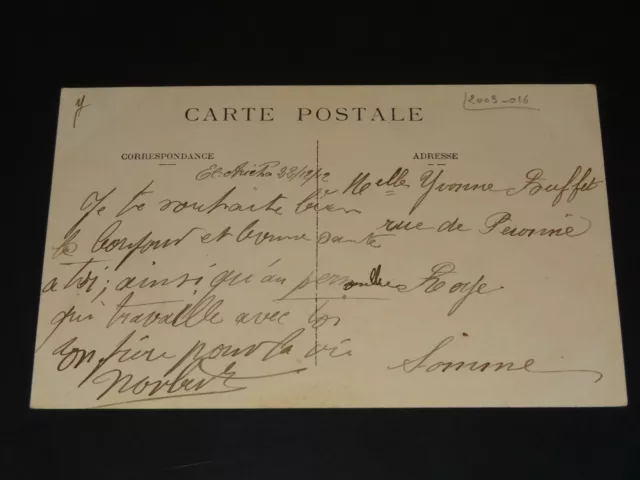 y
2003-016
CARTE POSTALE
CORRESPONDANCE
El Aricha 23/12/12
Je te souhaite bien
le bonjour et bonne santé
a toi; ainsi qu'au
qui travaille avec toi
ton frère pour la vie
Norbert
ADRESSE
Melle Yvonne Buffet
rue de Peronne
Roye
Somme